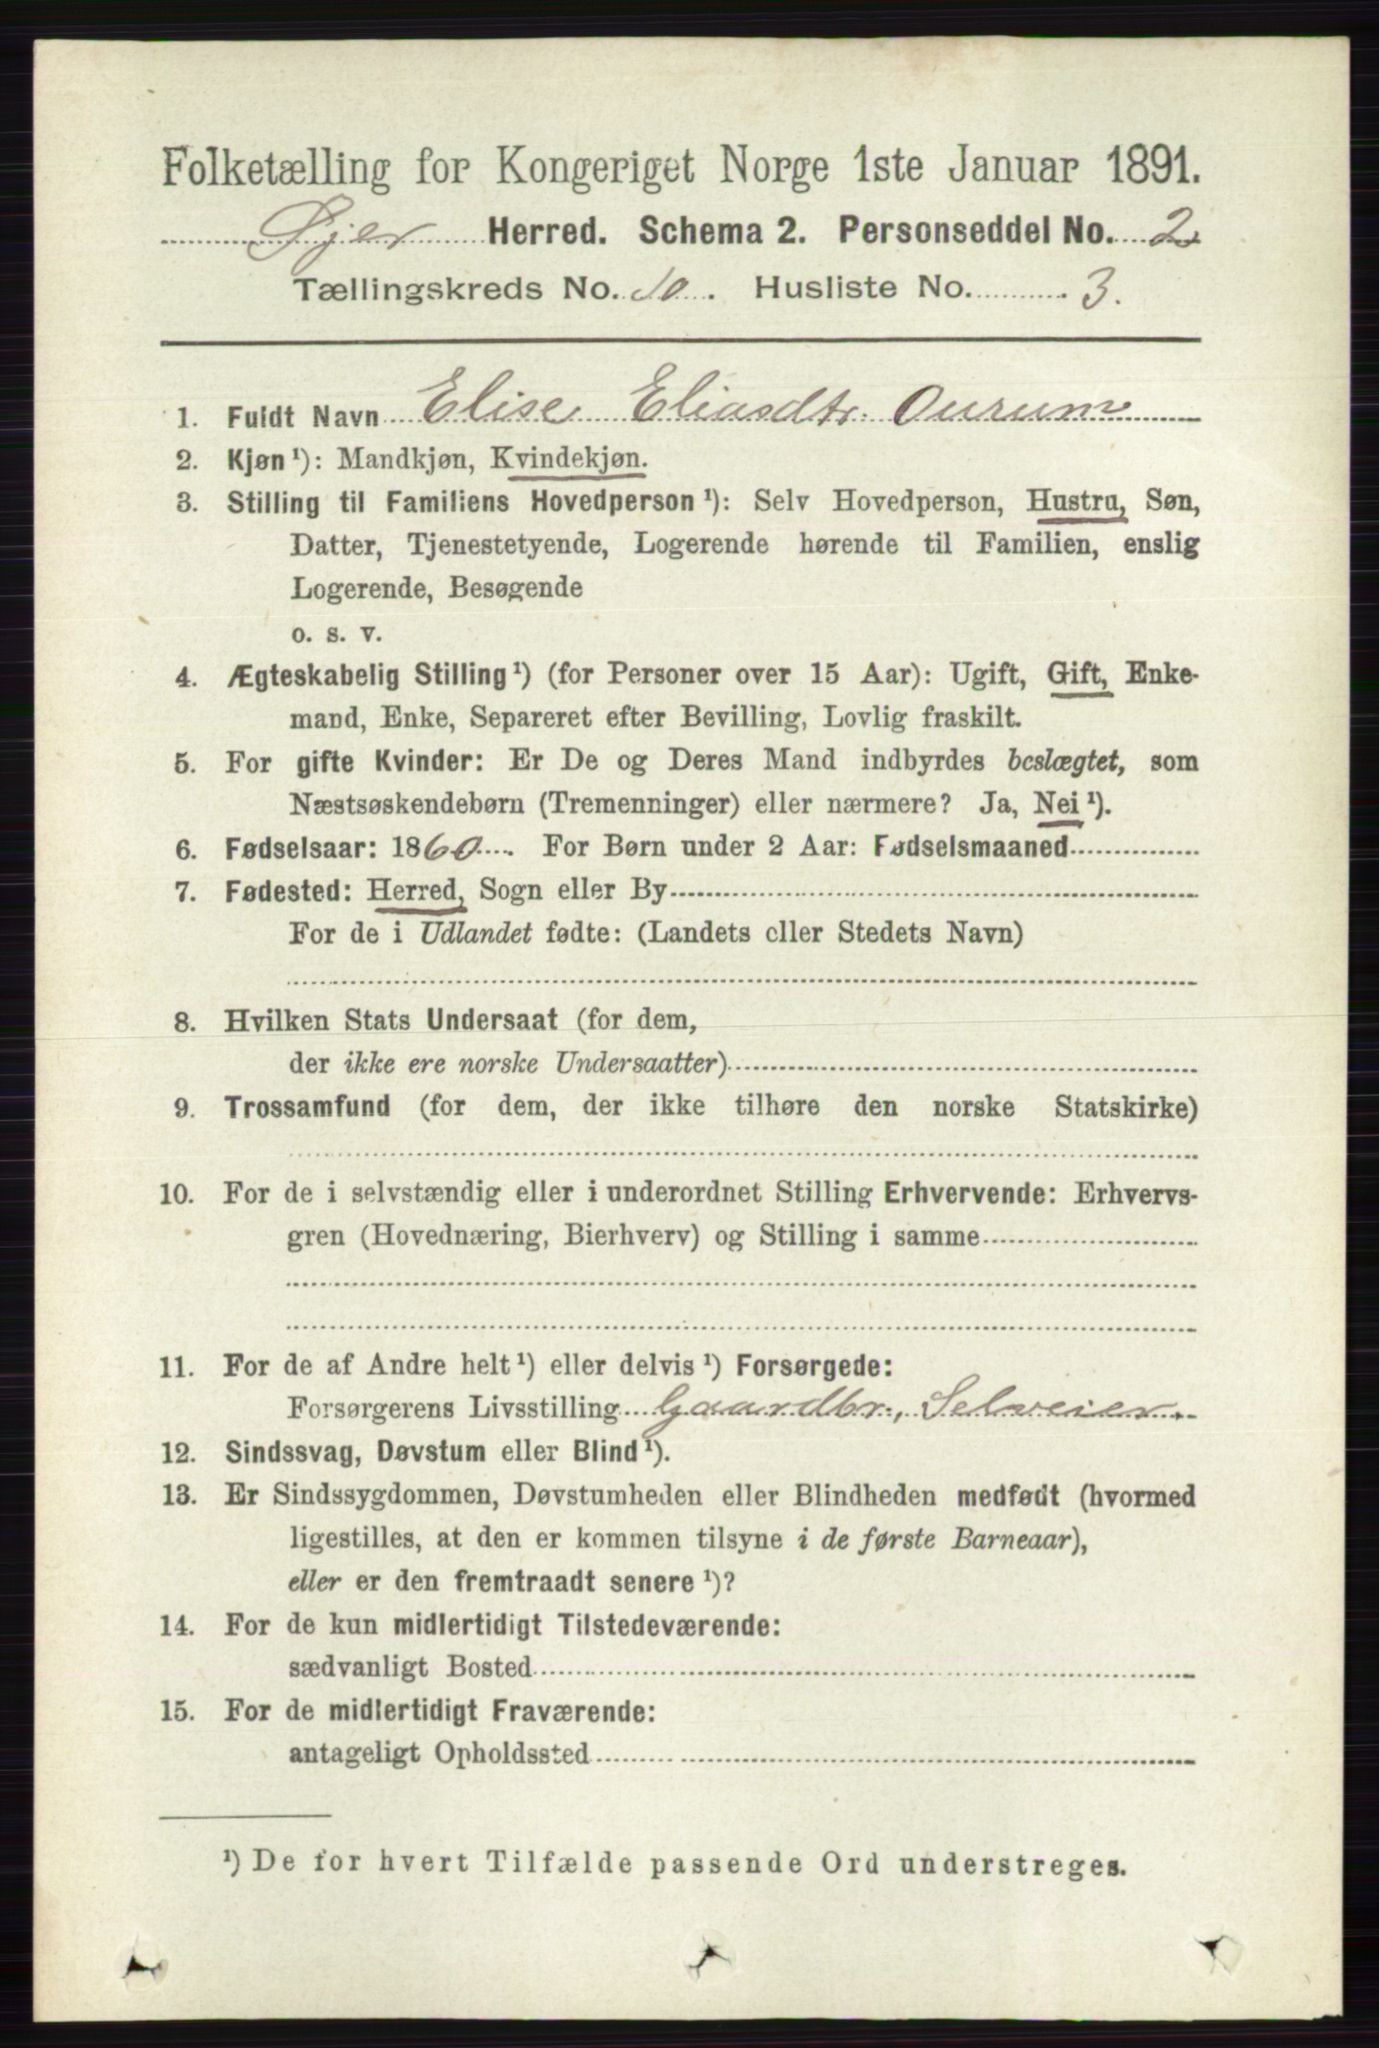 Folketælling for Kongeriget Norge 1ste Januar 1891.
Øjer Herred. Schema 2. Personseddel No. 2
Tællingskreds No. 10. Husliste No. 3.
1. Fuldt Navn Elise Eliasdtr. Ourum
2. Kjøn¹): Mandkjøn, Kvindekjøn.
3. Stilling til Familiens Hovedperson¹): Selv Hovedperson, Hustru, Søn,
Datter, Tjenestetyende, Logerende hørende til Familien, enslig
Logerende, Besøgende
o. s. v.
4. Ægteskabelig Stilling¹) (for Personer over 15 Aar): Ugift, Gift, Enke-
mand, Enke, Separeret efter Bevilling, Lovlig fraskilt.
5. For gifte Kvinder: Er De og Deres Mand indbyrdes beslægtet, som
Næstsøskendebørn (Tremenninger) eller nærmere? Ja, Nei¹).
6. Fødselsaar: 1860. For Børn under 2 Aar: Fødselsmaaned
7. Fødested: Herred, Sogn eller By
For de i Udlandet fødte: (Landets eller Stedets Navn)
8. Hvilken Stats Undersaat (for dem,
der ikke ere norske Undersaatter)
9. Trossamfund (for dem, der ikke tilhøre den norske Statskirke)
10. For de i selvstændig eller i underordnet Stilling Erhvervende: Erhvervs-
gren (Hovednæring, Bierhverv) og Stilling i samme
11. For de af Andre helt¹) eller delvis¹) Forsørgede:
Forsørgerens Livsstilling Gaardbr., Selveier.
12. Sindssvag, Døvstum eller Blind¹).
13. Er Sindssygdommen, Døvstumheden eller Blindheden medfødt (hvormed
ligestilles, at den er kommen tilsyne i de første Barneaar),
eller er den fremtraadt senere¹)?
14. For de kun midlertidigt Tilstedeværende:
sædvanligt Bosted
15. For de midlertidigt Fraværende:
antageligt Opholdssted
¹) De for hvert Tilfælde passende Ord understreges.